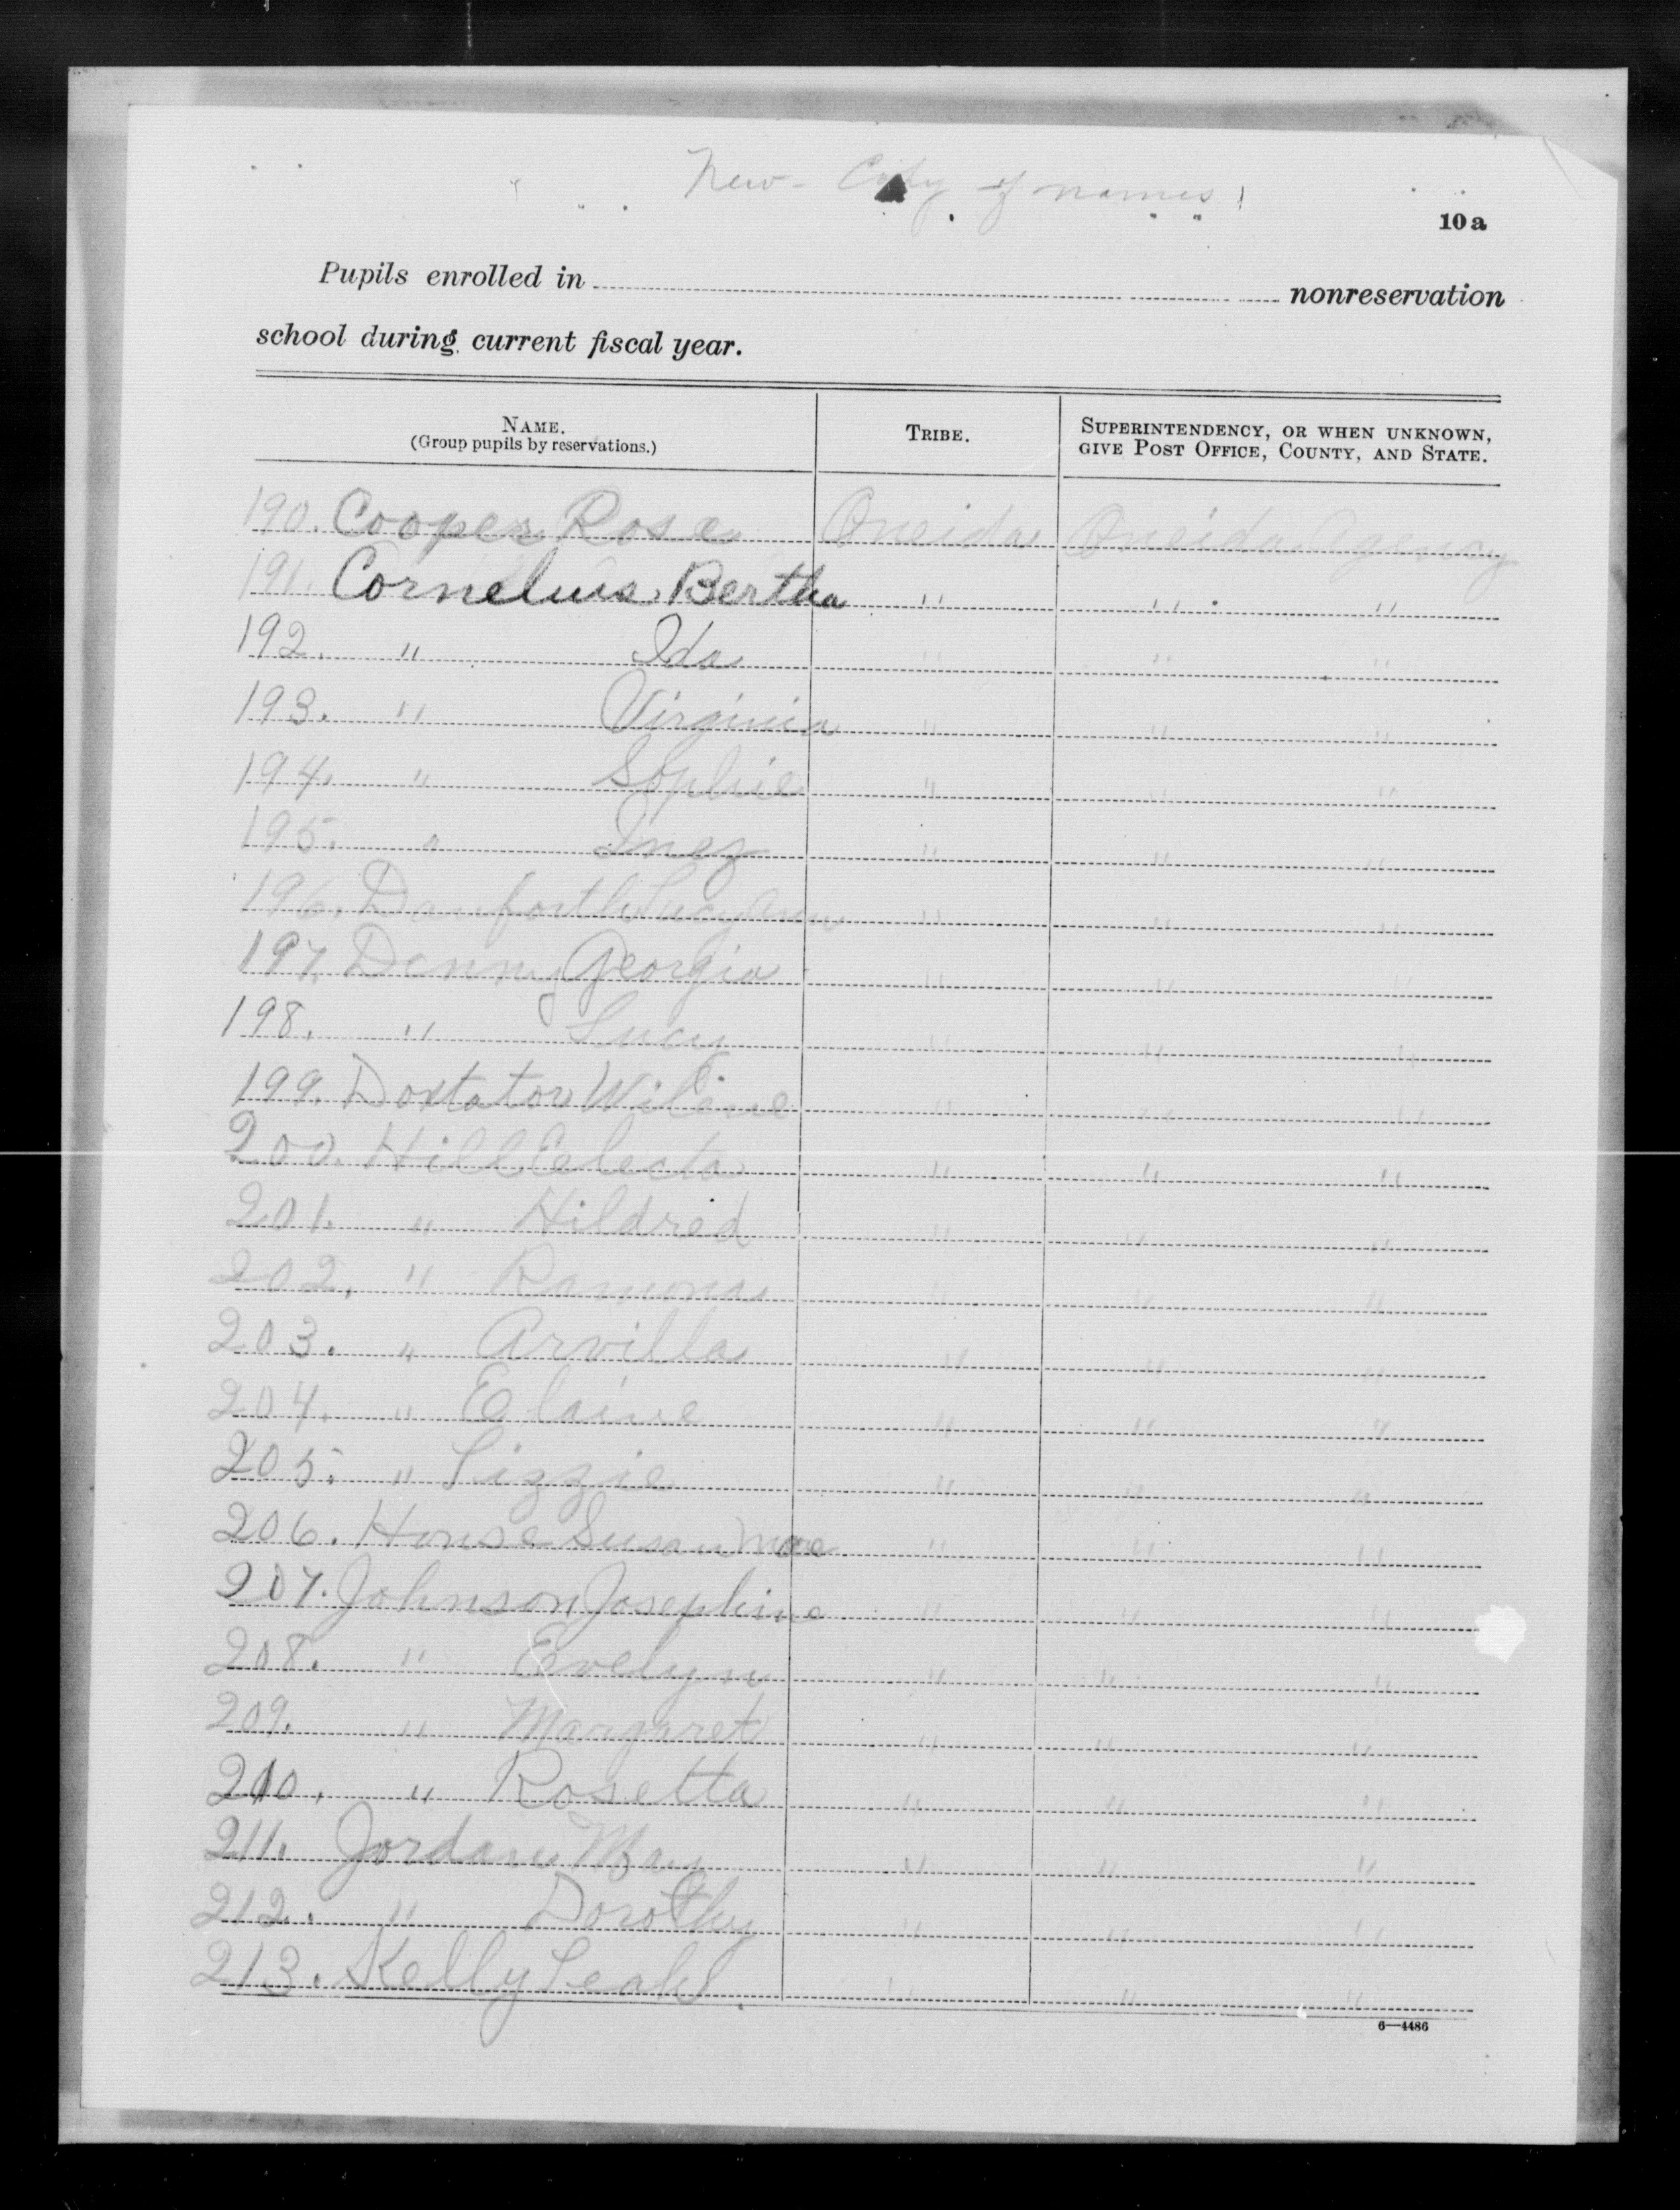 New - Copy of names
10a
Pupils enrolled in nonreservation
school during current fiscal year.
NAME. TRIBE. SUPERINTENDENCY, OR WHEN UNKNOWN,
(Group pupils by reservations.) GIVE POST OFFICE, COUNTY, AND STATE.
190. Cooper Rose Oneida Oneida Agency
191. Cornelius, Bertha " " "
192. " Ida " " "
193. " Virginia " " "
194. " Sophie " " "
195. " Inez " " "
196. Danforth Lucy Ann " " "
197. Denny Georgia " " "
198. " Lucy " " "
199. Doxtator " " "
200. Hill Electa " " "
201. " Hildred " " "
202. " Ramona " " "
203. " Arvilla " " "
204. " Elaine " " "
205. " Lizzie " " "
206. House Susan Mae " " "
207. Johnson Josephine " " "
208. " Evelyn " " "
209. " Margaret " " "
210. " Rosetta " " "
211. Jordan May " " "
212. " Dorothy " " "
213. Kelly Leah " " "
6—4486